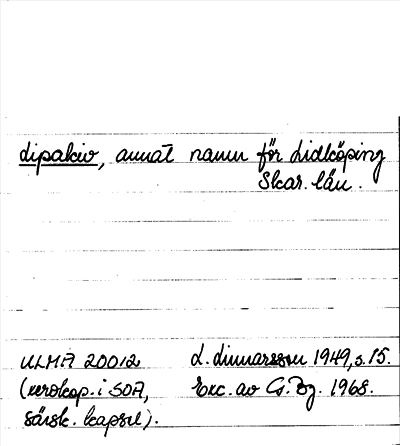 dipakiv, annat namn för Lidköping
Skar. län.
ULMA 20012
L. Linnarsson 1949, s. 15.
(xerokop. i SOA,
Exc. av G. Bg. 1968.
särsk. kapsel).